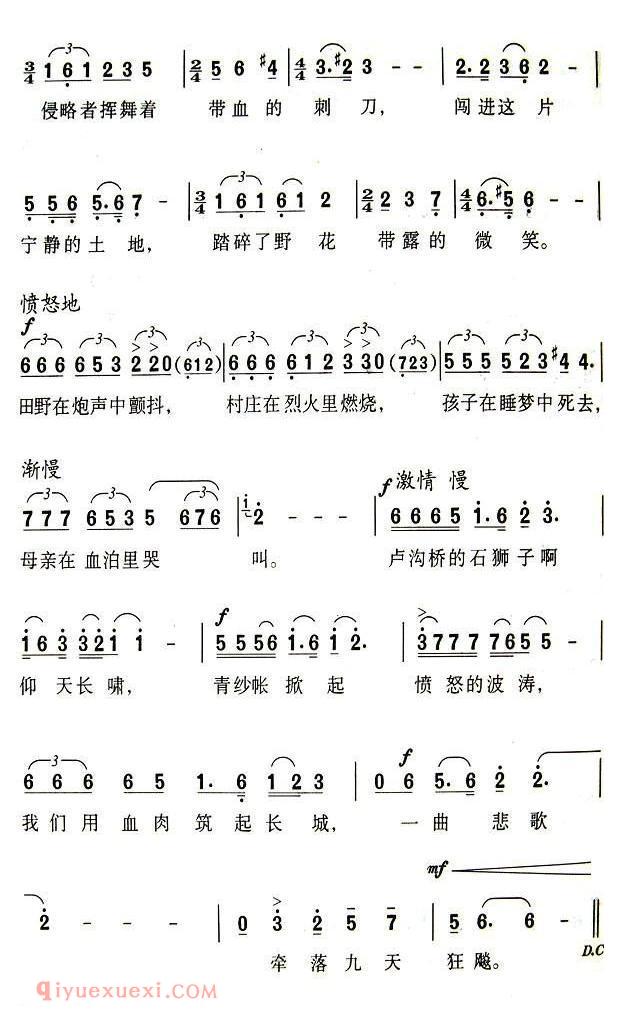 3/4 1 6 1 2 3 5 | 2/4 5 6 #4 | 4/4 3·#2 3 - - | 2·2 3 6 2 - |
侵略者挥舞着 带血的 刺刀， 闯进这片
5 5 6 5·6 7 - | 3/4 1 6 1 6 1 2 | 2/4 2 3 7 | 4/4 6·#5 6 - - |
宁静的土地， 踏碎了野花 带露的 微笑。
愤怒地
f
6 6 6 6 5 3 2 2 0 (6 1 2) | 6 6 6 6 1 2 3 3 0 (7 2 3) | 5 5 5 5 2 3 #4 4· |
田野在炮声中颤抖， 村庄在烈火里燃烧， 孩子在睡梦中死去，
渐慢 f 激情 慢
7 7 7 6 5 3 5 6 7 6 | i 2 - - - | 6 6 6 5 1·6 2 3· |
母亲在血泊里哭 叫。 卢沟桥的石狮子啊
f
1 6 3 3 2 1 1 - | 5 5 5 6 1·6 1 2· | 3 7 7 7 7 6 5 5 - |
仰天长啸， 青纱帐掀起 愤怒的波涛，
f
6 6 6 6 5 1·6 1 2 3 | 0 6 5·6 2 2· |
我们用血肉筑起长城， 一曲悲歌
mf
2 - - - | 0 3 2 5 7 | 5 6· 6 - ‖
D.C
牵落九天 狂飚。
qiyuexuexi.com